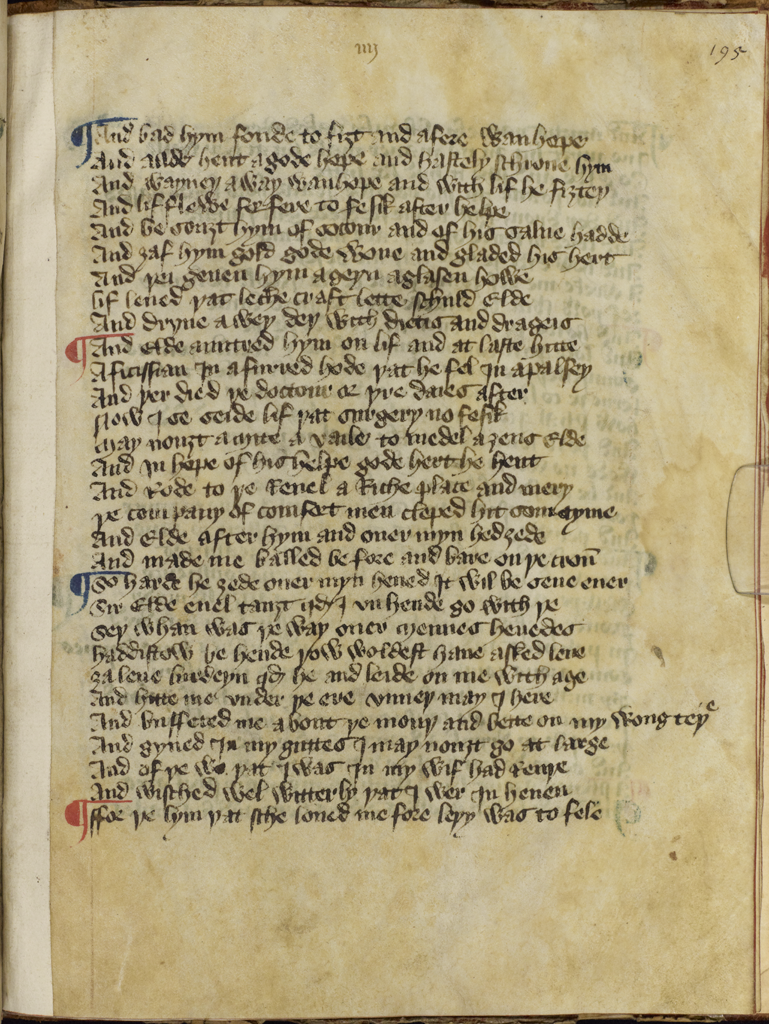 iiij
195
And bad hym fonde to fiȝt and afere wanhope
And aude hent a gode hope and hastely schroue hym
And wayuey a way wanhope and with lif he fiȝtey
And lif flewe for fere to fesik after helpe
And be souȝt hym of socour and of his salue hadde
And ȝaf hym gold gode wone and gladed his hert
And yei geuen hym ageyn a glasen howe
lif leued yat leche craft lette schuld Elde
And dryue a wey dey with dietis and drageis
And Elde auntred hym on lif and at laste hitte
A ficissian in a furred hode yat he fel in a palsey
And yer died ye doctour or yre daies after
Now I se seide lif yat surgery no fesik
May nouȝt a myte a vaile to medel aȝens Elde
And in hope of his helpe gode hert he hent
And Rode to ye Reuel a Riche place and mery
ye company of comfort men cleped hit som tyme
And Elde after hym and ouer myn hed ȝede
And made me balled be fore and bare on ye croun
So harde he ȝede ouer myn heued It wil be sene euer
Sir Elde euel tauȝt qd I vn hende go with ye
Sey whan was ye way ouer mennes heuedes
Haddistow be hende yow woldest haue asked leue
ȝa leue lurdeyn qd he and leide on me with age
And hitte me vnder ye ere vnney may I here
And buffered me about ye mouy and bette on my wong teye
And gyued In my guttes I may nouȝt go at large
And of ye wo yat I was In my wif had Reuye
And wisched wel witterly yat I wer In heuen
ffor ye lym yat sche loued me fore leyy was to fele